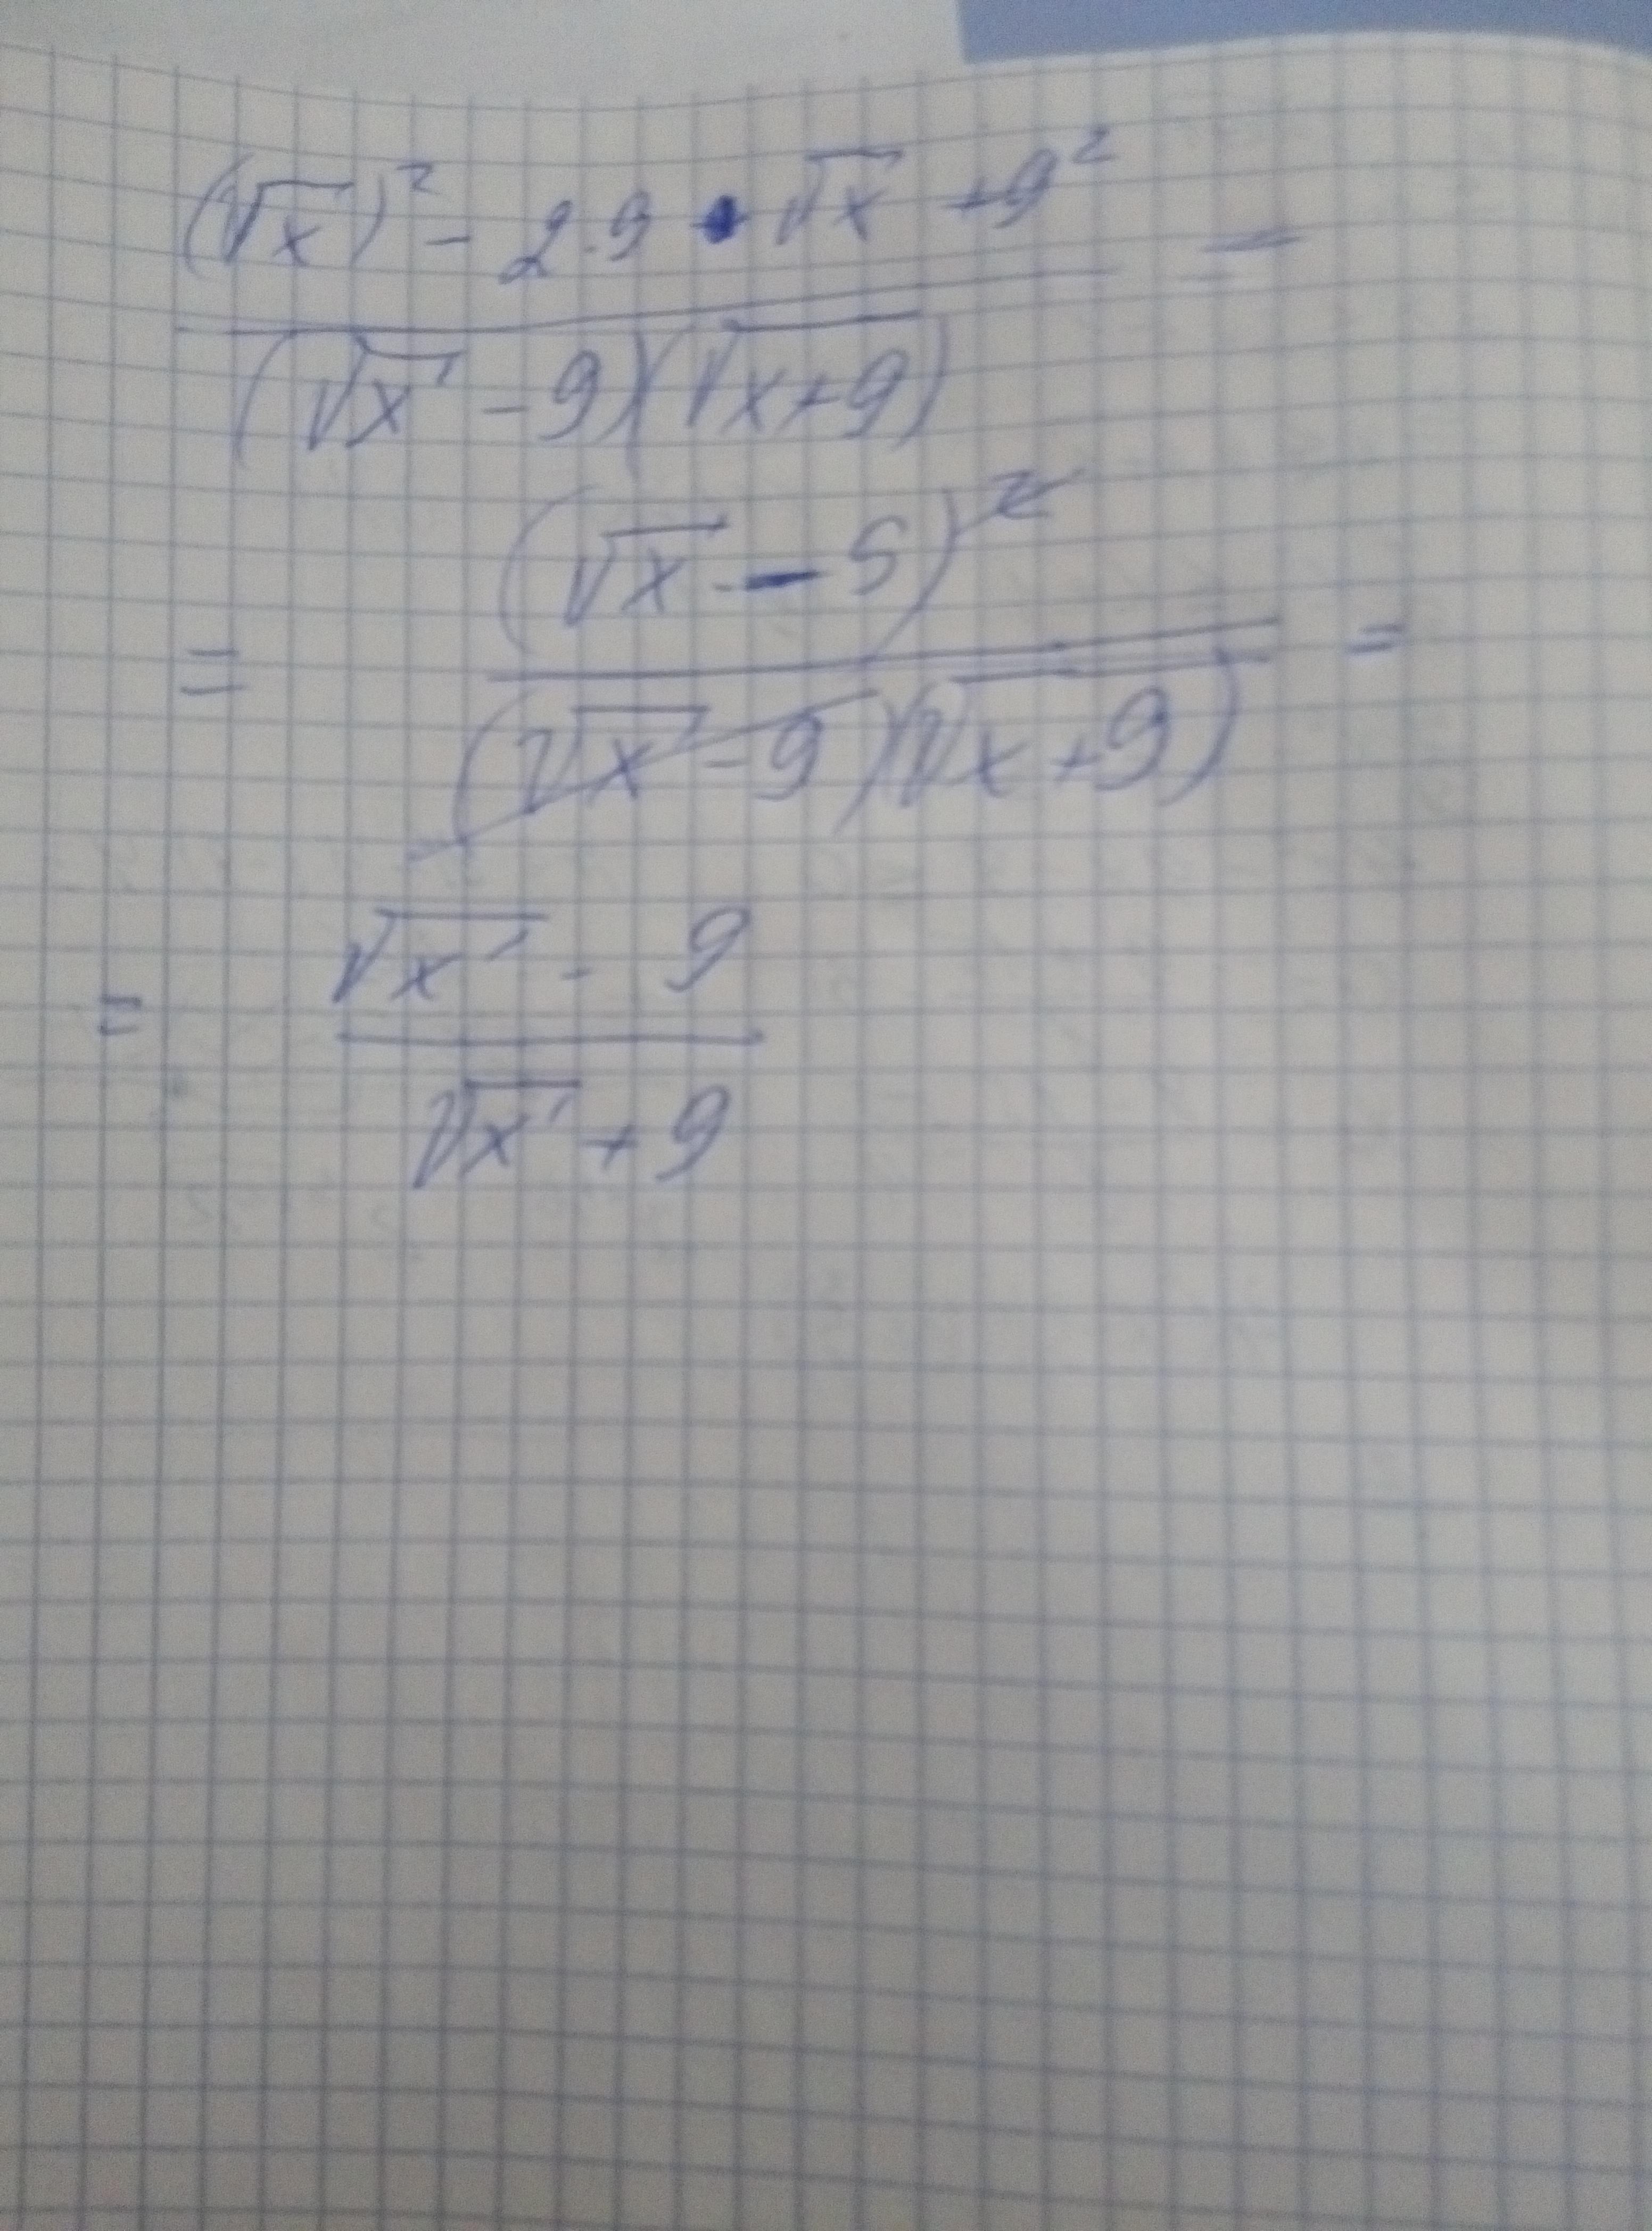 (√x)² - 2·9·√x + 9² =
(√x - 9)(√x+9)
= (√x - 5)² =
(√x - 9)(√x+9)
= √x - 9
√x + 9